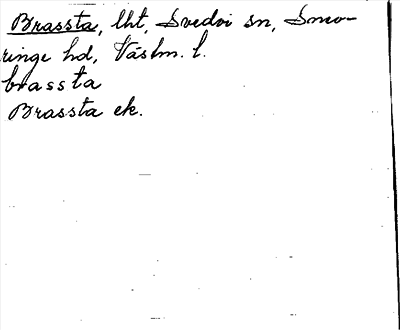 Brassta, lht, Svedvi sn, Snev-
ringe hd, Västm. l.
brassta
Brassta ek.